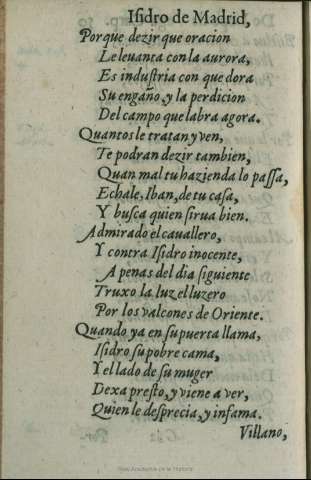 Isidro de Madrid,
Porque dezir que oracion
Le leuanta con la aurora,
Es industria con que dora
Su engaño, y la perdicion
Del campo que labra agora.
Quantos le tratan y ven,
Te podran dezir tambien,
Quan mal tu hazienda lo passa,
Echale, Iban, de tu casa,
Y busca quien sirua bien.
Admirado el cauallero,
Y contra Isidro inocente,
A penas del dia siguiente
Truxo la luz el luzero
Por los valcones de Oriente.
Quando ya en su puerta llama,
Isidro su pobre cama,
Y el lado de su muger
Dexa presto, y viene a ver,
Quien le desprecia, y infama.
Villano,
Real Academia de la Historia